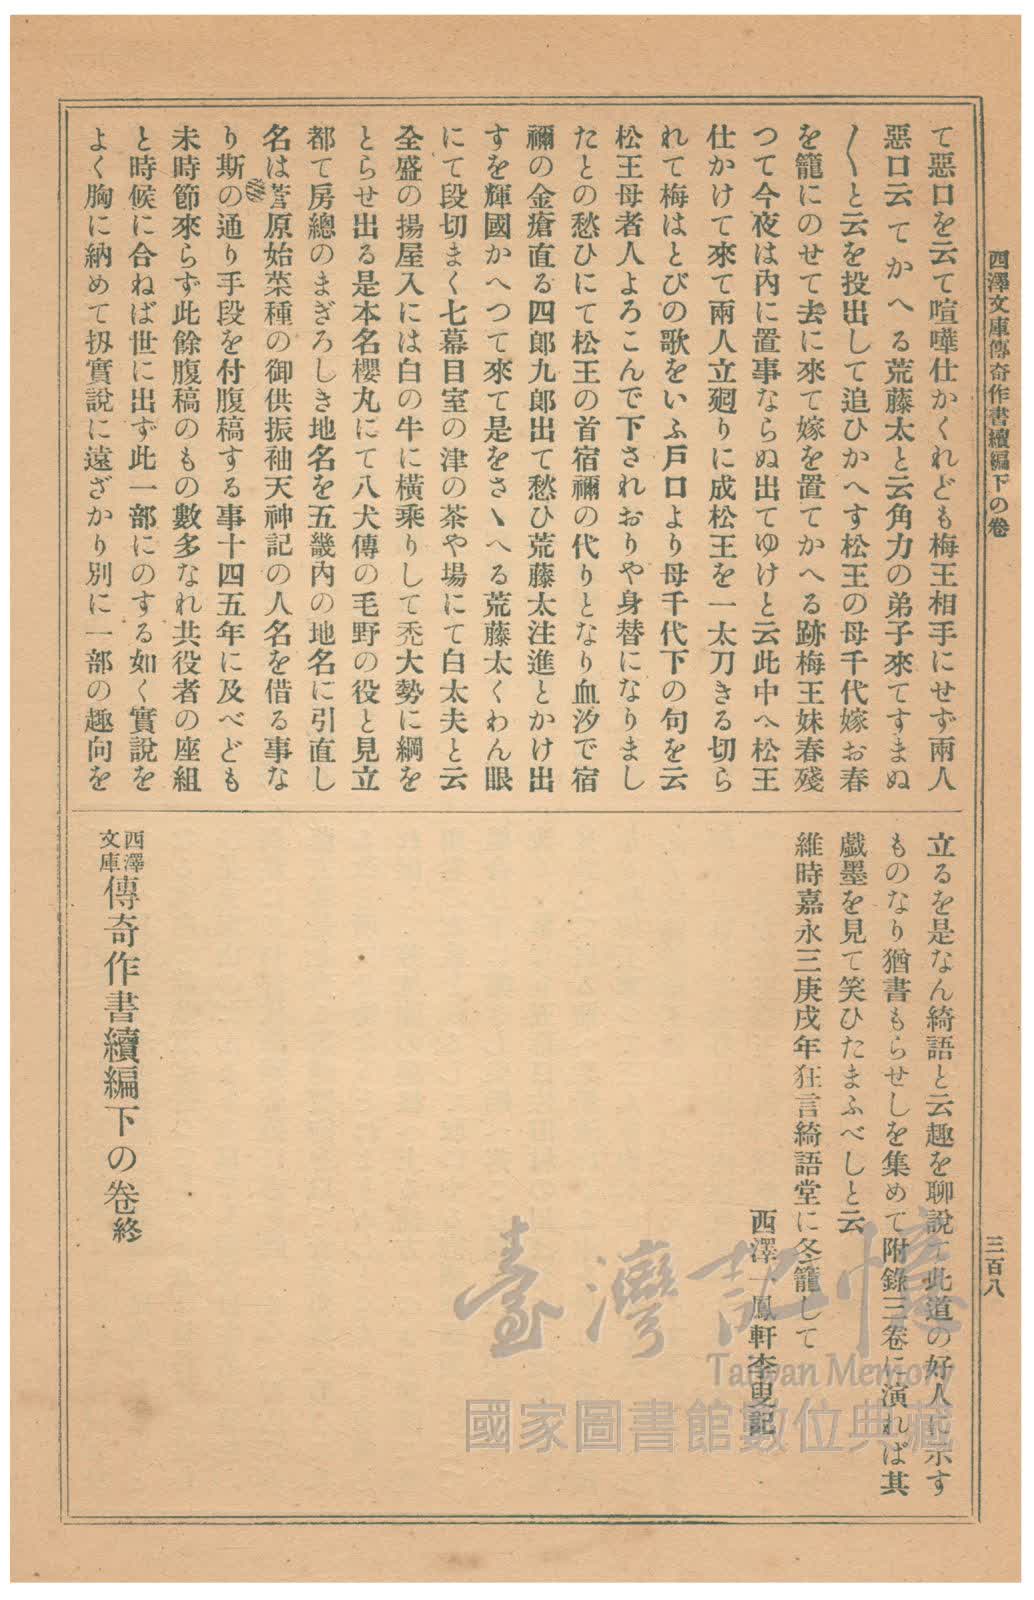 西澤文庫傳奇作書續編下の卷
三百八
て惡口を云て喧嘩仕かくれども梅王相手にせず兩人
惡口云てかへる荒藤太と云角力の弟子來てすまぬ
〱と云を投出して追ひかへす松王の母千代嫁お春
を籠にのせて去に來て嫁を置てかへる跡梅王妹春殘
つて今夜は內に置事ならぬ出てゆけと云此中へ松王
仕かけて來て兩人立廻りに成松王を一太刀きる切ら
れて梅はとびの歌をいふ戶口より母千代下の句を云
松王母者人よろこんで下されおりや身替になりまし
たとの愁ひにて松王の首宿禰の代りとなり血汐で宿
禰の金瘡直る四郎九郎出て愁ひ荒藤太注進とかけ出
すを輝國かへつて來て是をさゝへる荒藤太くわん眼
にて段切まく七幕目室の津の茶や場にて白太夫と云
全盛の揚屋入には白の牛に橫乘りして禿大勢に綱を
とらせ出る是本名櫻丸にて八犬傳の毛野の役と見立
都て房總のまぎろしき地名を五畿內の地名に引直し
名は菅原始菜種の御供振袖天神記の人名を借る事な
り斯の通り手段を付腹稿する事十四五年に及べども
未時節來らず此餘腹稿のもの數多なれ共役者の座組
と時候に合ねば世に出ず此一部にのする如く實說を
よく胸に納めて扨實說に遠ざかり別に一部の趣向を
立るを是なん綺語と云趣を聊說て此道の好人に示す
ものなり猶書もらせしを集めて附錄三卷に演れば其
戲墨を見て笑ひたまふべしと云
維時嘉永三庚戌年狂言綺語堂に冬籠して
西澤一鳳軒李叟記
西澤文庫傳奇作書續編下の卷終
臺灣記憶
Taiwan Memory
國家圖書館數位典藏